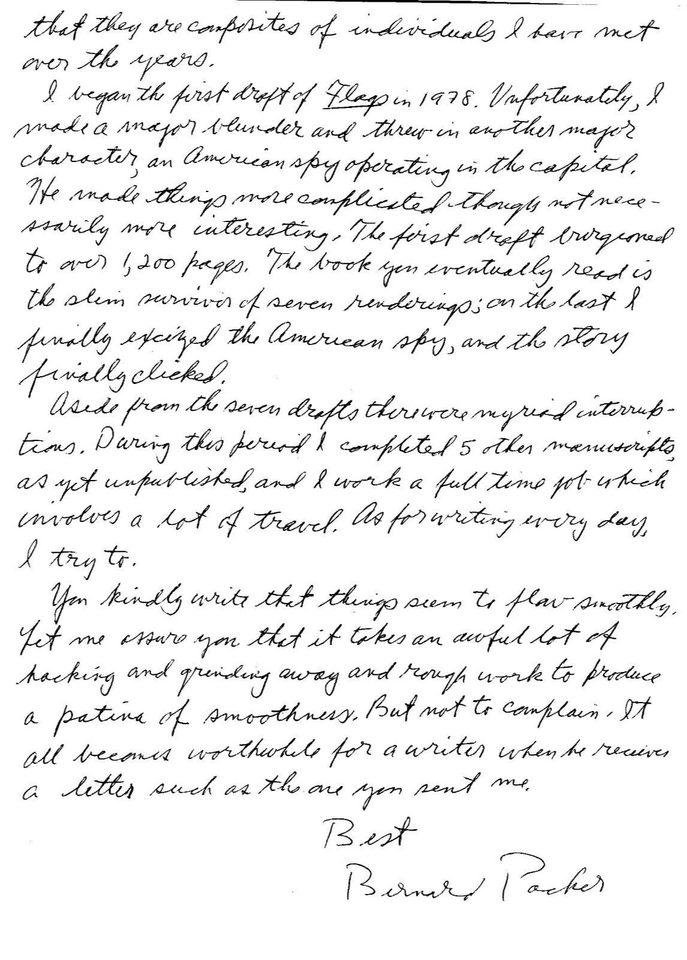 that they are composites of individuals I have met
over the years.
I began the first draft of Flags in 1978. Unfortunately, I
made a major blunder and threw in another major
character, an American spy operating in the capital.
He made things more complicated though not nece-
ssarily more interesting. The first draft burgeoned
to over 1,200 pages. The book you eventually read is
the slim survivor of seven renderings; on the last I
finally excized the American spy, and the story
finally clicked.
Aside from the seven drafts there were myriad interrup-
tions. During this period I completed 5 other manuscripts,
as yet unpublished, and I work a full time job which
involves a lot of travel. As for writing every day,
I try to.
You kindly write that things seem to flow smoothly.
Let me assure you that it takes an awful lot of
hacking and grinding away and rough work to produce
a patina of smoothness. But not to complain. It
all becomes worthwhile for a writer when he receives
a letter such as the one you sent me.
Best
Bernard Packer